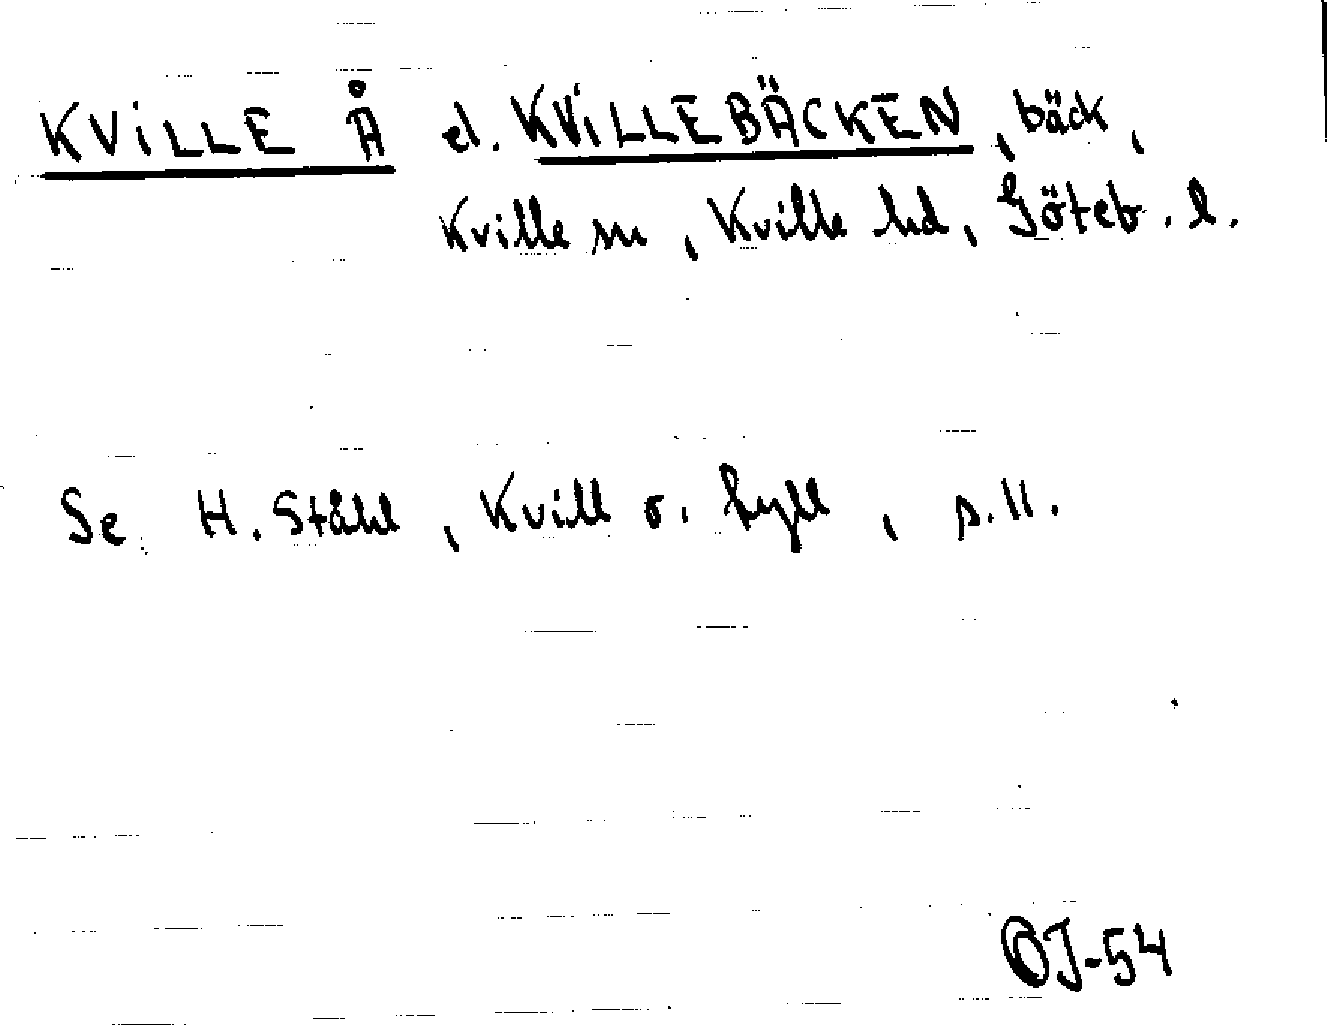 KVILLE Å el. KVILLEBÄCKEN, bäck,
Kville sn, Kville hd, Göteb. l.
Se H. Ståhl, Kvill o. tyll, s. 11.
OJ-54